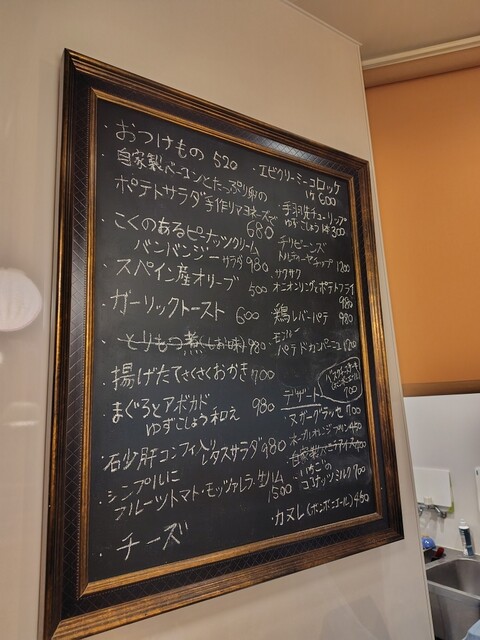 ・おつけもの 520
・自家製ベーコンとたっぷり卵の
ポテトサラダ 手作りマヨネーズで
680
・こくのあるピーナッツクリーム
バンバンジーサラダ 980
・スペイン産オリーブ
500
・ガーリックトースト 600
・とりもつ煮(しお味) 980
・揚げたてさくさくおかき 700
・まぐろとアボカド
ゆずこしょう和え 980
・砂肝コンフィ入り
レタスサラダ 980
・シンプルに
フルーツトマト・モッツァレラ・生ハム
1500
・チーズ
・エビクリーミーコロッケ
1ケ 600
・手羽先チューリップ
ゆずこしょう 1本 300
・チリビーンズ
トルティーヤチップ 1200
・サクサク
オニオンリングとポテトフライ
980
・鶏レバーパテ 980
パテドカンパーニュ 1200
700
デザート
・ヌガーグラッセ 700
・いちごの
ココナッツミルク 700
・カヌレ(ボンボニエール) 450